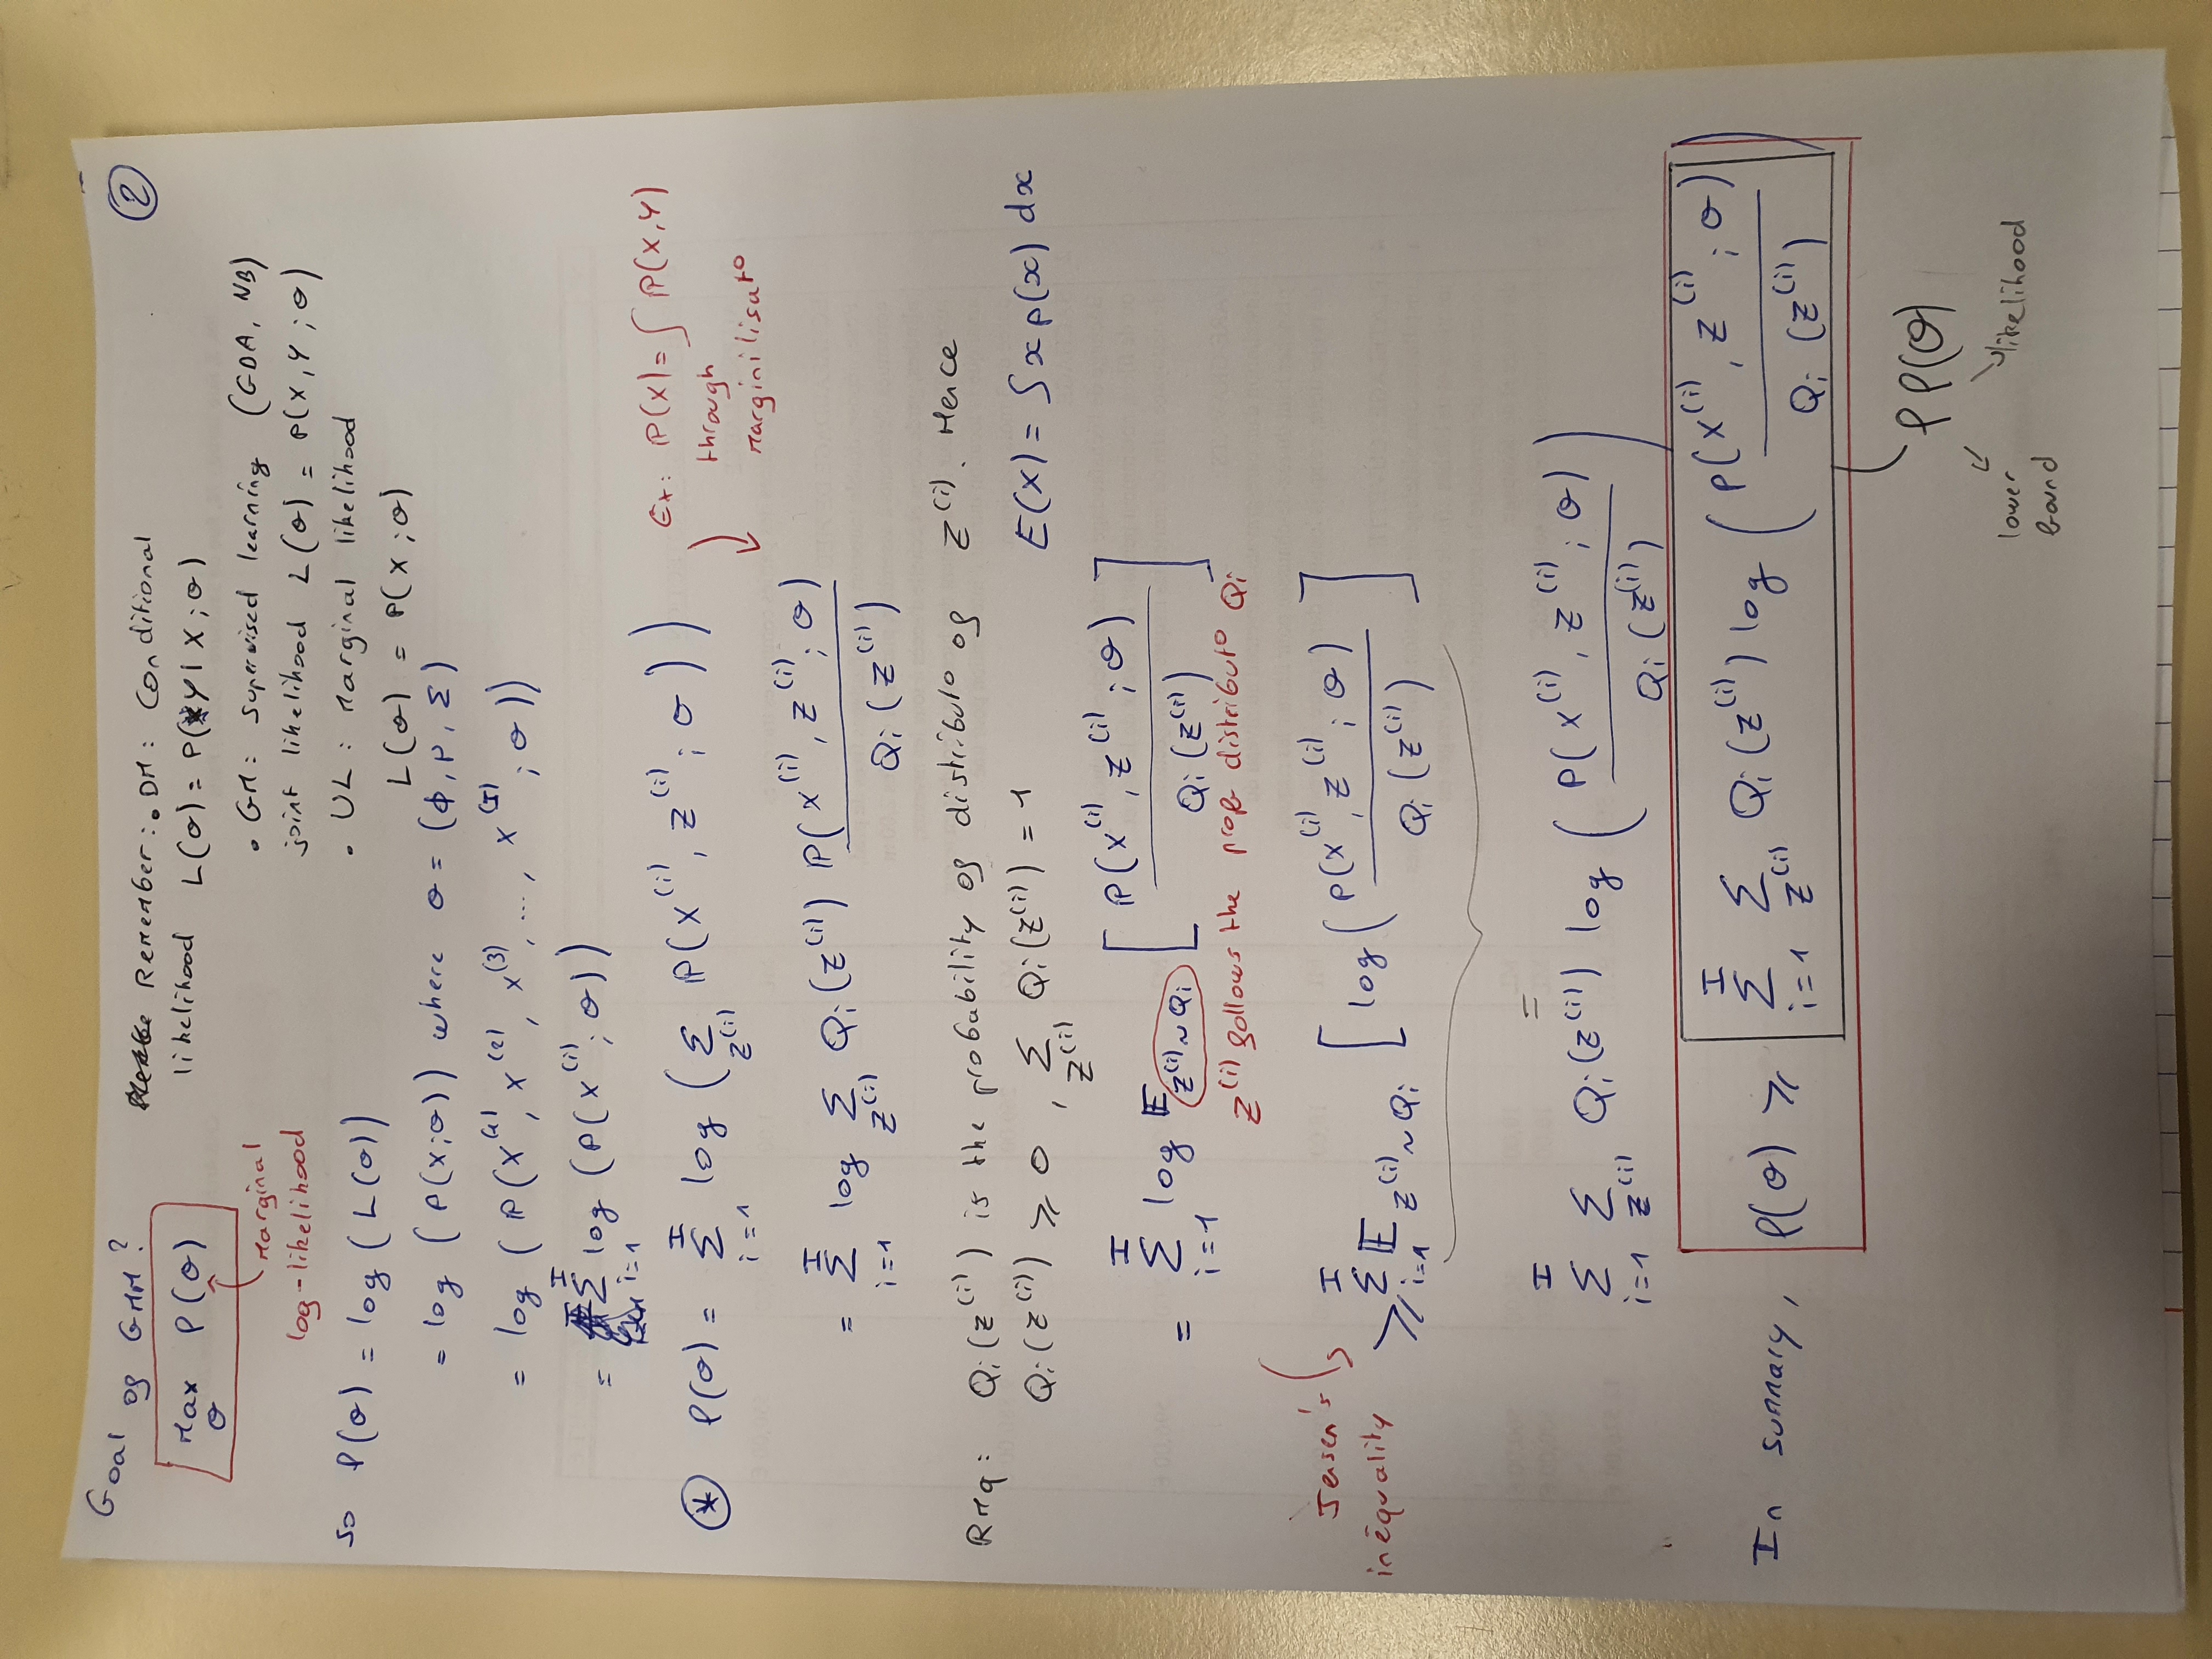 ②
Goal of GMM?
max_θ ℓ(θ)
marginal
log-likelihood
Remember: • DM: Conditional
likelihood L(θ) = P(Y | X ; θ)
• GM: Supervised learning (GDA, NB)
joint likelihood L(θ) = P(X, Y ; θ)
• UL: Marginal likelihood
L(θ) = P(X ; θ)
so ℓ(θ) = log (L(θ))
= log (P(X;θ)) where θ = (ϕ, μ, Σ)
= log (ℙ(x^(1), x^(2), x^(3), ..., x^(I) ; θ))
= Σ_{i=1}^{I} log (P(x^(i) ; θ))
Ex: ℙ(X) = ∫ ℙ(X,Y)
through
marginilisat°
(*) ℓ(θ) = Σ_{i=1}^{I} log ( Σ_{z^(i)} ℙ(x^(i), z^(i) ; θ) )
= Σ_{i=1}^{I} log Σ_{z^(i)} Q_i(z^(i)) ℙ(x^(i), z^(i) ; θ) / Q_i(z^(i))
Rmq: Q_i(z^(i)) is the probability of distribut° of z^(i). Hence
Q_i(z^(i)) ⩾ 0, Σ_{z^(i)} Q_i(z^(i)) = 1
E(X) = ∫ x p(x) dx
= Σ_{i=1}^{I} log 𝔼_{z^(i) ~ Q_i} [ ℙ(x^(i), z^(i) ; θ) / Q_i(z^(i)) ]
z^(i) follows the prob distribut° Q_i
Jensen's
inequality
⩾ Σ_{i=1}^{I} 𝔼_{z^(i) ~ Q_i} [ log ( P(x^(i), z^(i) ; θ) / Q_i(z^(i)) ) ]
=
Σ_{i=1}^{I} Σ_{z^(i)} Q_i(z^(i)) log ( P(x^(i), z^(i) ; θ) / Q_i(z^(i)) )
In summary, ℓ(θ) ⩾ Σ_{i=1}^{I} Σ_{z^(i)} Q_i(z^(i)) log ( P(x^(i), z^(i) ; θ) / Q_i(z^(i)) )
ℓℓ(θ)
lower
bound
likelihood